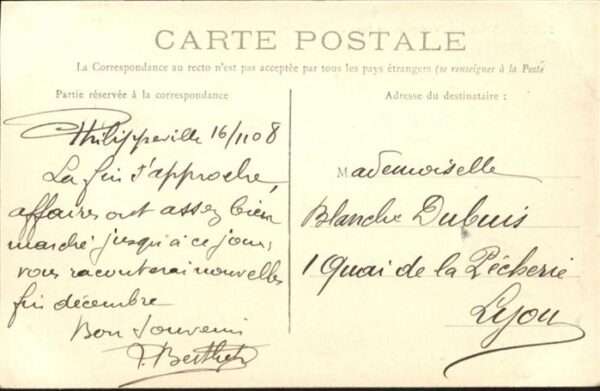 CARTE POSTALE
La Correspondance au recto n'est pas acceptée par tous les pays étrangers (se renseigner à la Poste
Partie réservée à la correspondance
Philippeville 16/1108
La fin s'approche,
affaires ont assez bien
marché jusqu'à ce jour,
vous raconterai nouvelles
fin décembre
Bon Souvenir
Berthet
Adresse du destinataire :
Mademoiselle
Blanche Dubuis
1 Quai de la Pêcherie
Lyon